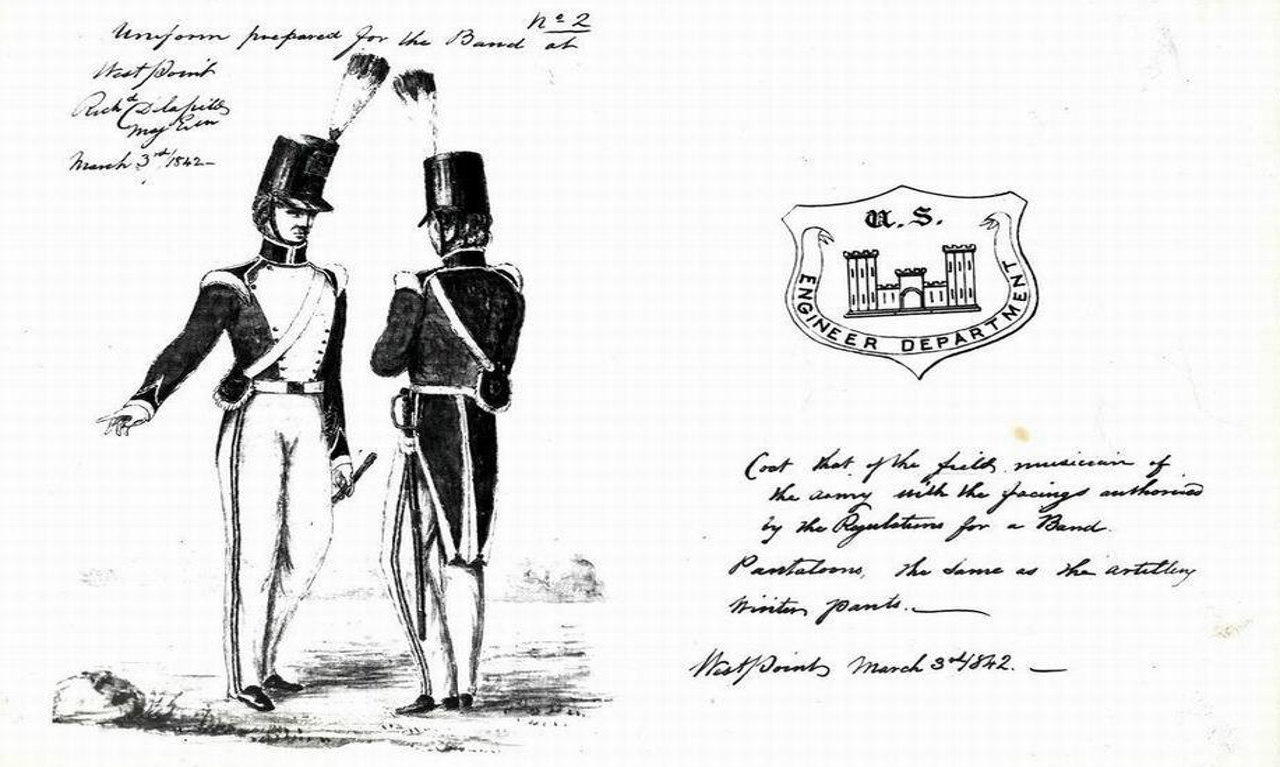 No 2
Uniform prepared for the Band at
West Point
Richd Delafield
Maj Engr
March 3rd/1842-
U.S.
ENGINEER DEPARTMENT
Coat that of the field musician of
the army with the facings authorised
by the Regulations for a Band.
Pantaloons, the same as the artillery
winter pants.—
West Point March 3rd/1842. —